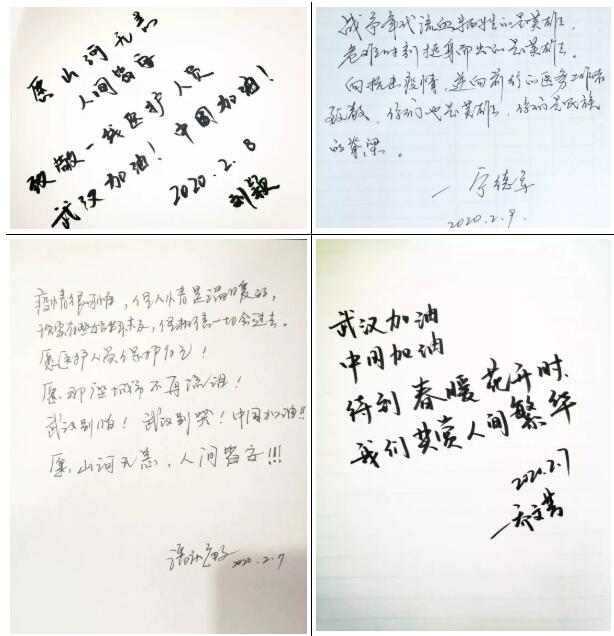 愿山河无恙
人间皆安
致敬一线医护人员
武汉加油！中国加油！
2020.2.8
刘颖
战争年代流血牺牲的是英雄，
危难时刻挺身而出的是英雄。
向抗击疫情，逆向前行的医务工作者
致敬，你们也是英雄，你们是民族
的脊梁。
2020.2.9.
疫情很可怕，但人情是温暖的，
但相信一切会过去。
愿医护人员保护自己！
愿那座城市不再流泪！
武汉别怕！武汉别哭！中国加油!!
愿山河无恙，人间皆安!!!
2020.2.7
武汉加油
中国加油
待到春暖花开时
我们共赏人间繁华
2020.2.7